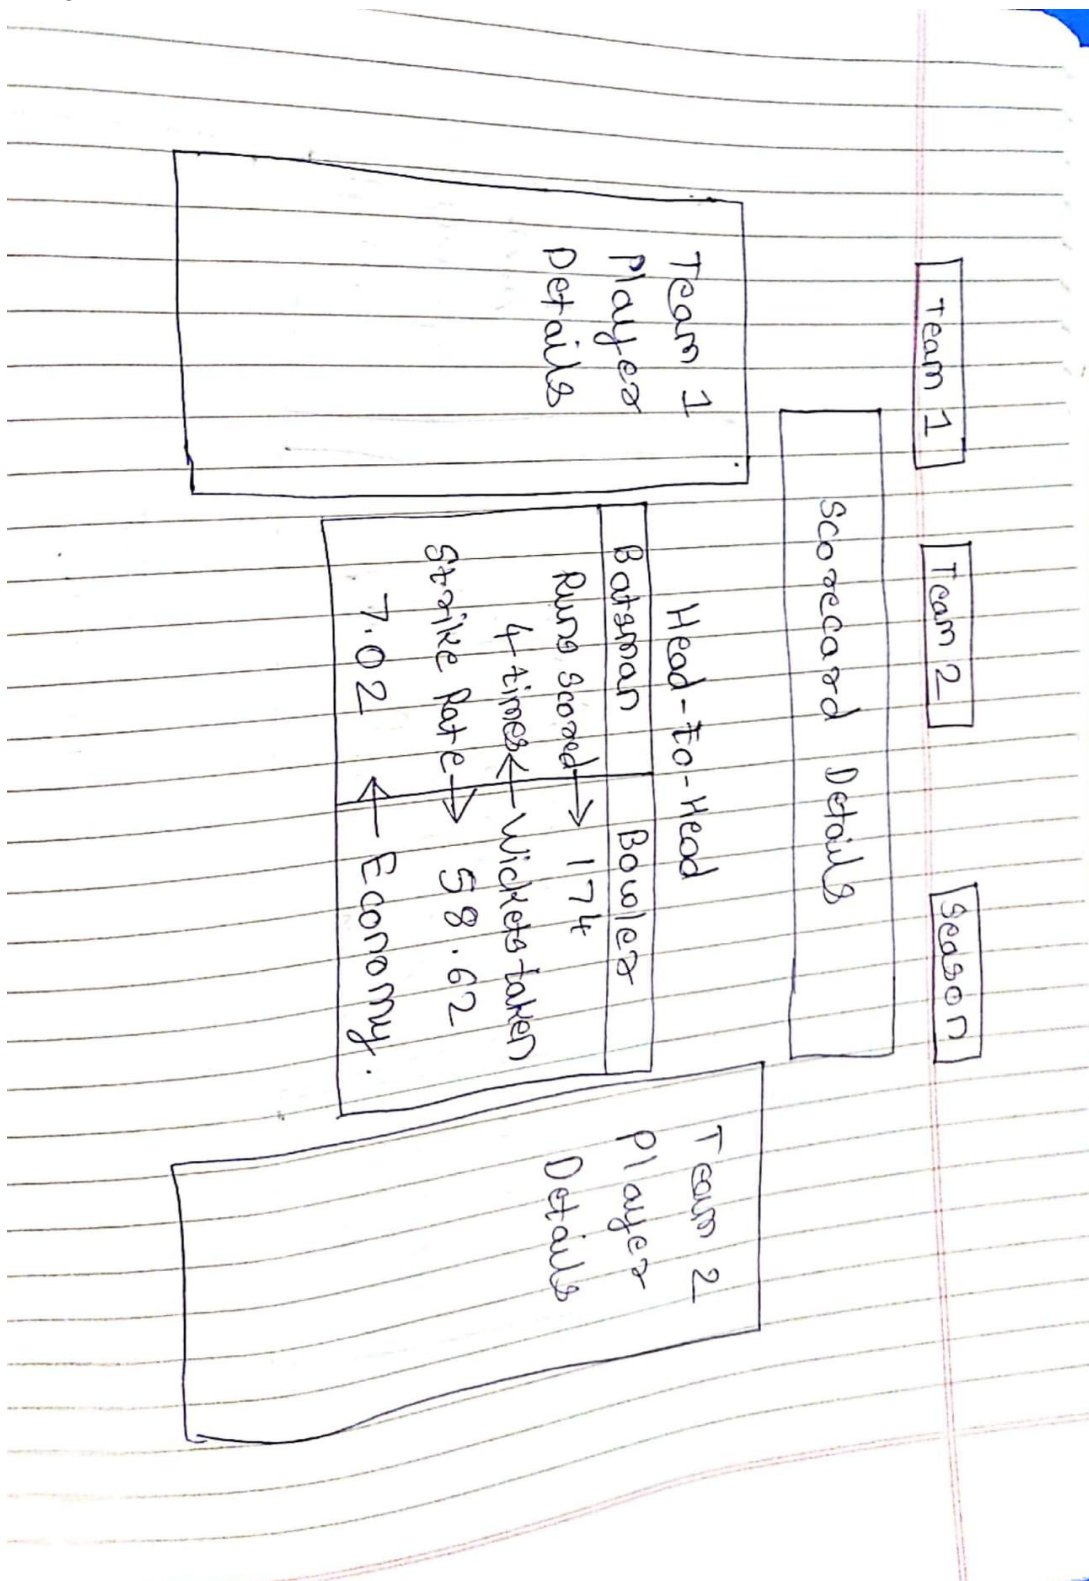 Team 1
Team 2
Season
Scorecard Details
Team 1
Player
Details
Head-to-Head
Batsman
Bowler
Runs Scored → 174
4 times ← Wickets taken
Strike Rate → 58.62
7.02 ← Economy.
Team 2
Player
Details